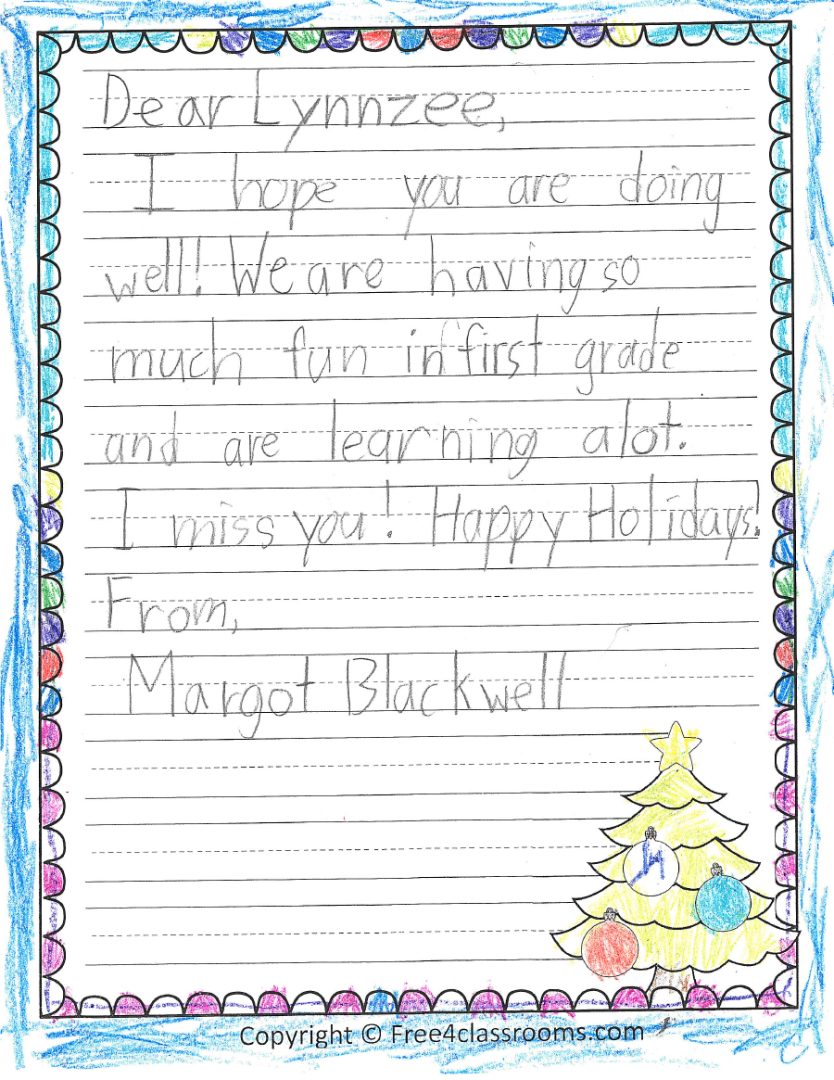 Dear Lynnzee,
I hope you are doing
well! We are having so
much fun in first grade
and are learning alot.
I miss you! Happy Holidays!
From,
Margot Blackwell
Copyright © Free4classrooms.com